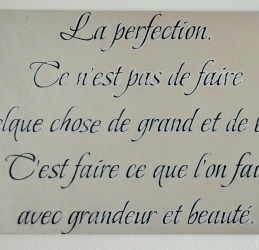 La perfection.
Ce n'est pas de faire
elque chose de grand et de b
C'est faire ce que l'on fai
avec grandeur et beauté.